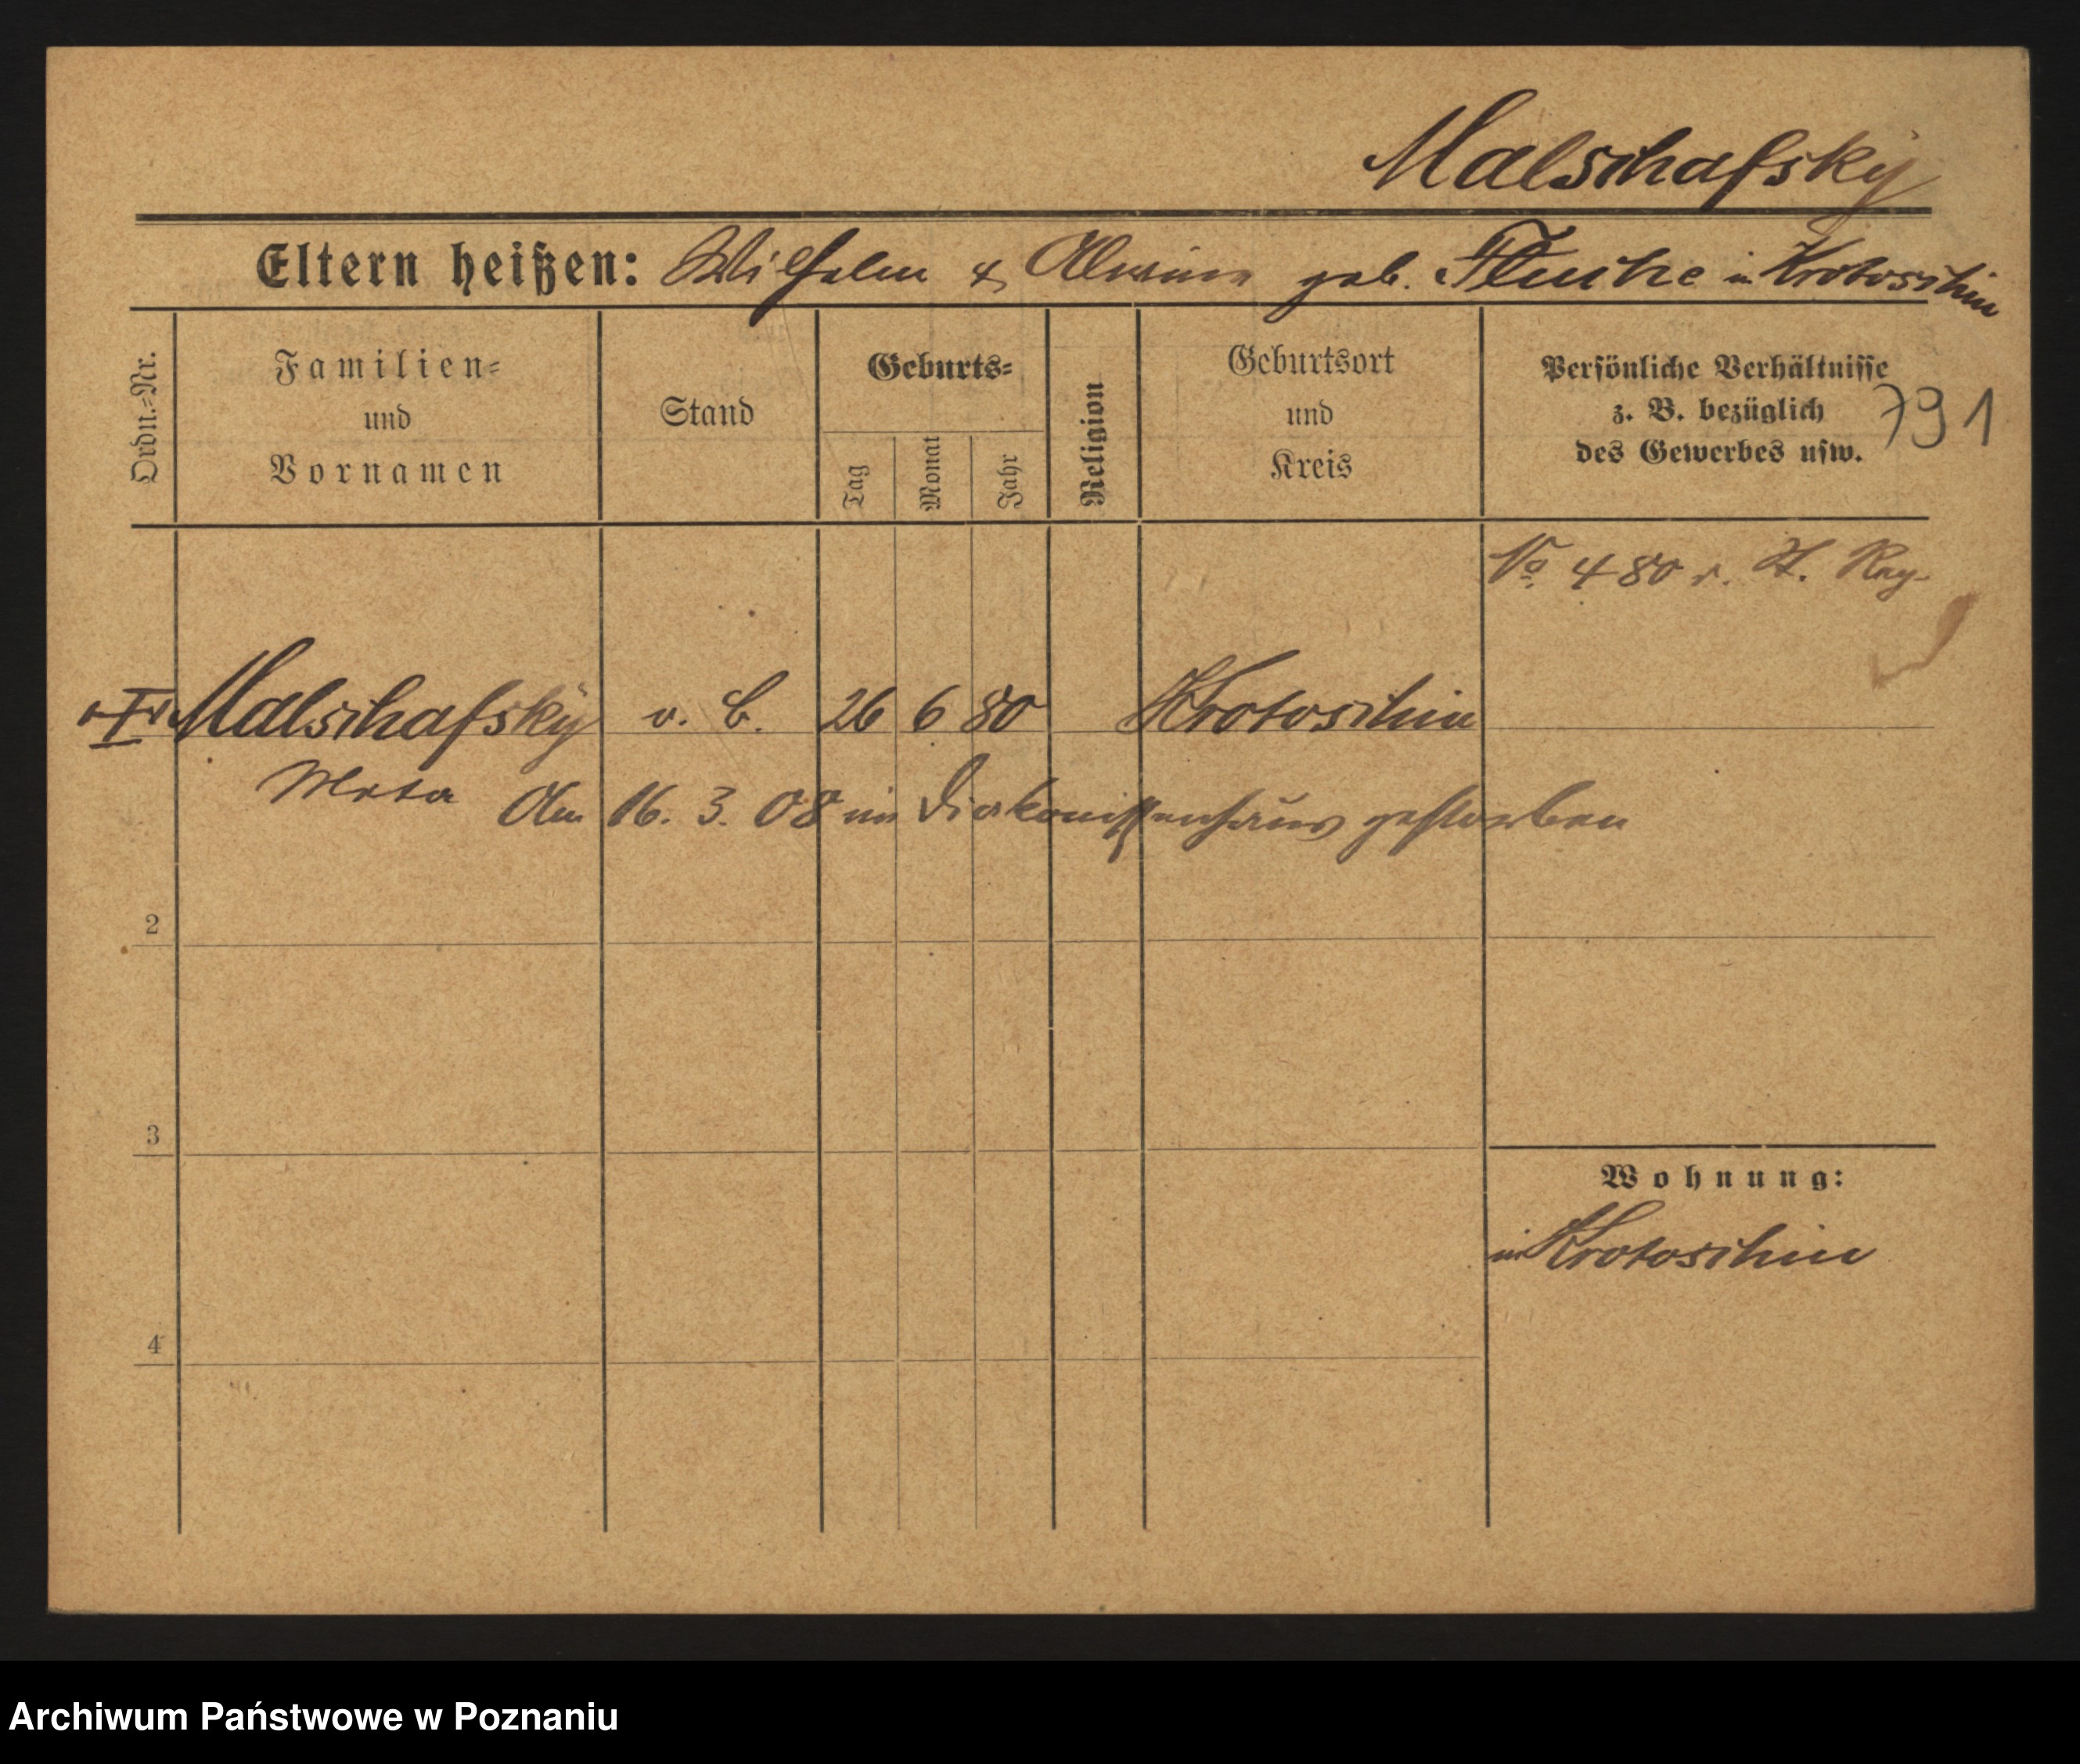 Malschafsky
Eltern heißen: Wilhelm & Alwine geb. in Krotoschin
Ordn.=Nr.
Familien=
und
Vornamen
Stand
Geburts=
Tag
Monat
Jahr
Religion
Geburtsort
und
Kreis
Persönliche Verhältnisse
z. B. bezüglich
des Gewerbes usw.
791
No 480 v. H. Reg.
Malschafsky o. B. 26 6 80 Krotoschin
Meta
Am 16. 3. 08 im Diakonissenhaus gestorben
2
3
Wohnung:
in Krotoschin
4
Archiwum Państwowe w Poznaniu